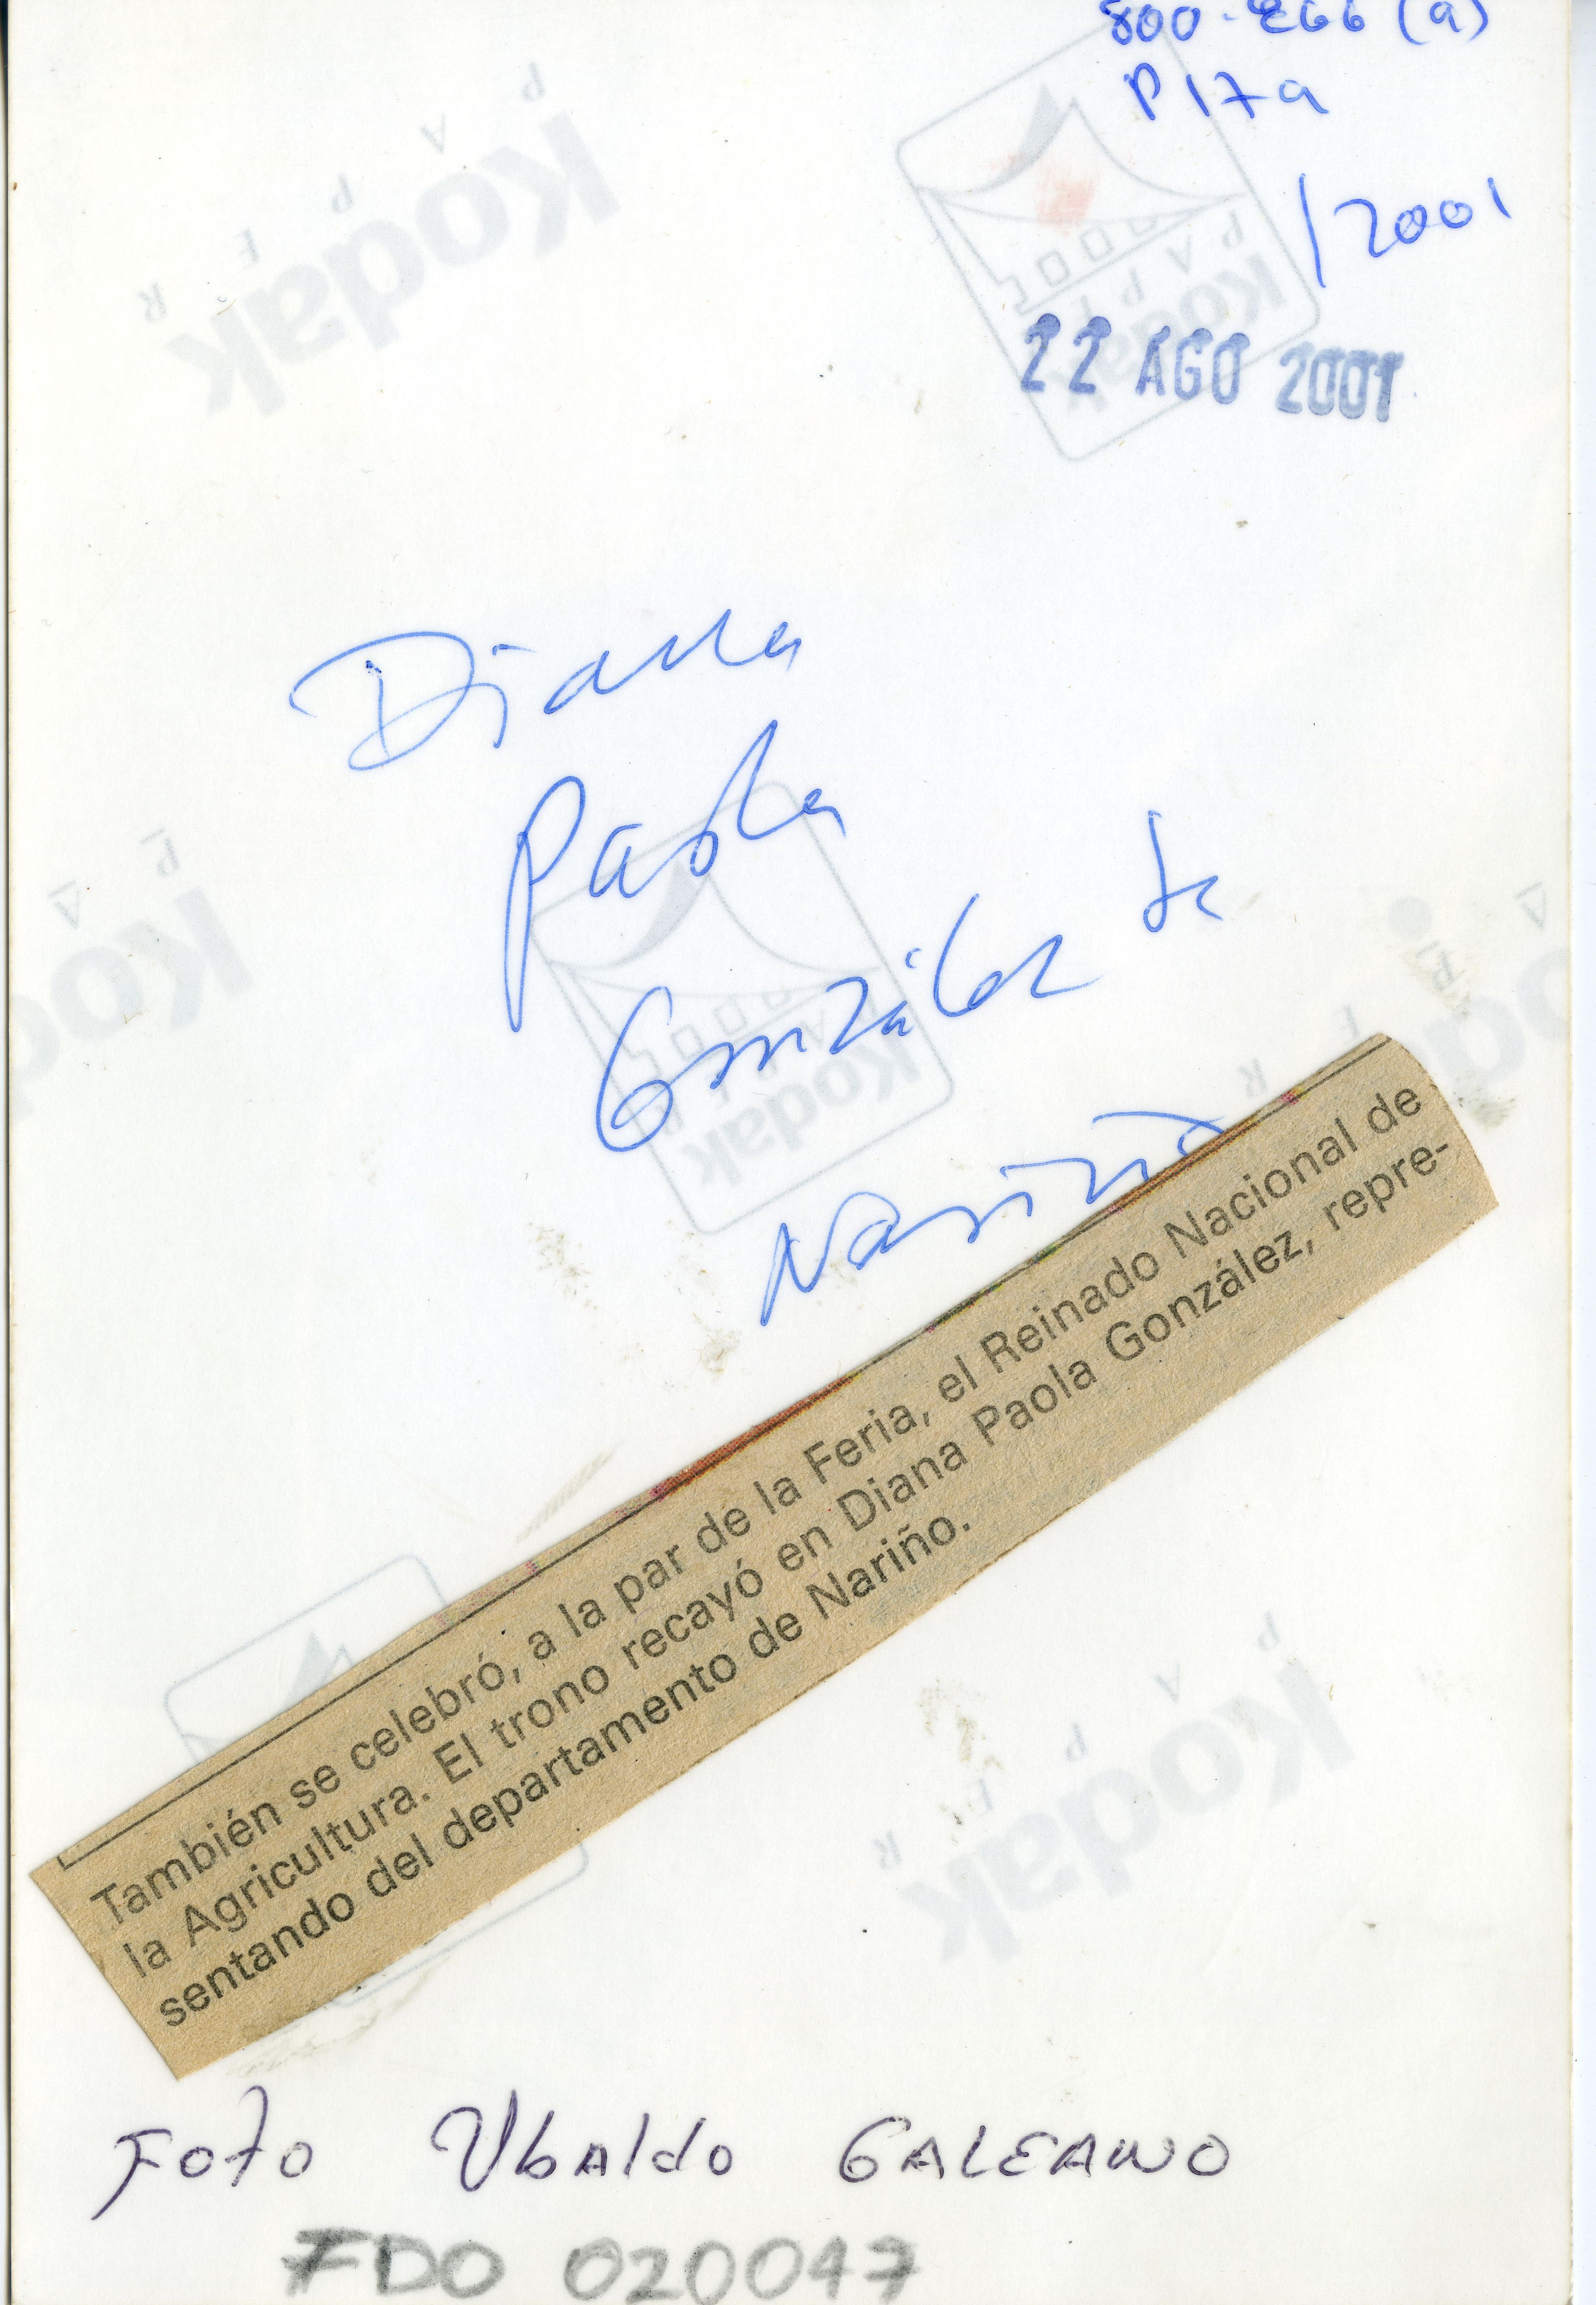 800-266 (a)
P 17a
/2001
22 AGO 2001
Diana
Paola
González de
Nariño
También se celebró, a la par de la Feria, el Reinado Nacional de
la Agricultura. El trono recayó en Diana Paola González, repre-
sentando del departamento de Nariño.
Foto Ubaldo GALEANO
FDO 020047
Kodak
PAPER
Kodak
PAPER
Kodak
Kodak
PAPER
Kodak
PAPER